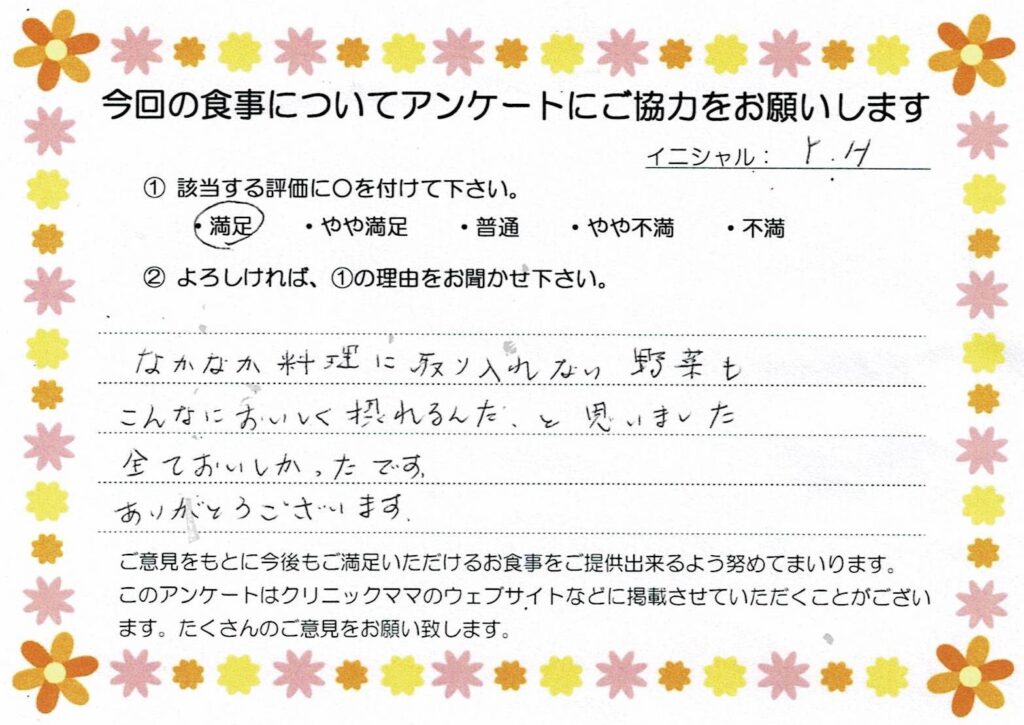 今回の食事についてアンケートにご協力をお願いします
イニシャル： Y.H
① 該当する評価に〇を付けて下さい。
・満足 ・やや満足 ・普通 ・やや不満 ・不満
② よろしければ、①の理由をお聞かせ下さい。
なかなか料理に取り入れない野菜も
こんなにおいしく摂れるんだ、と思いました
全ておいしかったです。
ありがとうございます。
ご意見をもとに今後もご満足いただけるお食事をご提供出来るよう努めてまいります。
このアンケートはクリニックママのウェブサイトなどに掲載させていただくことがござい
ます。たくさんのご意見をお願い致します。